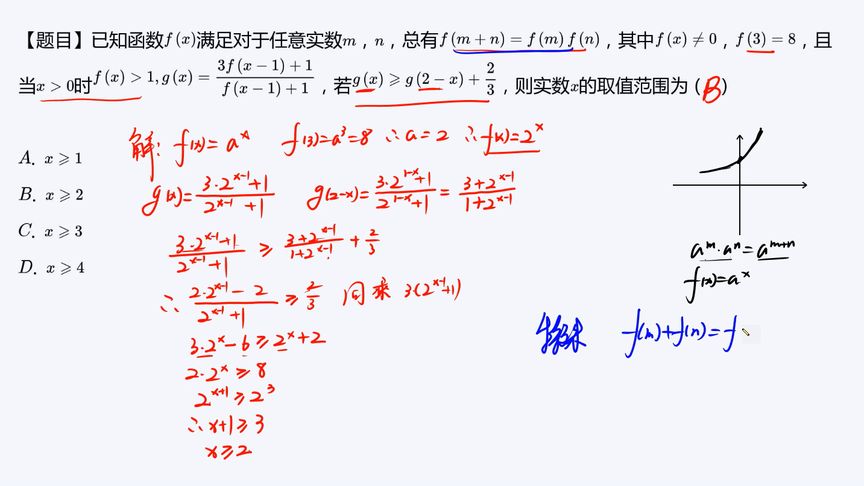 【题目】已知函数f(x)满足对于任意实数m，n，总有f(m+n)=f(m)f(n)，其中f(x)≠0，f(3)=8，且
当x>0时f(x)>1,g(x)=\frac{3f(x-1)+1}{f(x-1)+1}，若g(x)⩾g(2-x)+\frac{2}{3}，则实数x的取值范围为（B）
A. x⩾1
B. x⩾2
C. x⩾3
D. x⩾4
解: f(x)=a^x f(3)=a^3=8 ∴a=2 ∴f(x)=2^x
g(x)=\frac{3·2^{x-1}+1}{2^{x-1}+1} g(2-x)=\frac{3·2^{1-x}+1}{2^{1-x}+1}=\frac{3+2^{x-1}}{1+2^{x-1}}
\frac{3·2^{x-1}+1}{2^{x-1}+1}⩾\frac{3+2^{x-1}}{1+2^{x-1}}+\frac{2}{3}
∴\frac{2·2^{x-1}-2}{2^{x-1}+1}⩾\frac{2}{3} 同乘 3(2^{x-1}+1)
3·2^x-6⩾2^x+2
2·2^x⩾8
2^{x+1}⩾2^3
∴x+1⩾3
x⩾2
a^m·a^n=a^{m+n}
f(x)=a^x
f(m)+f(n)=f